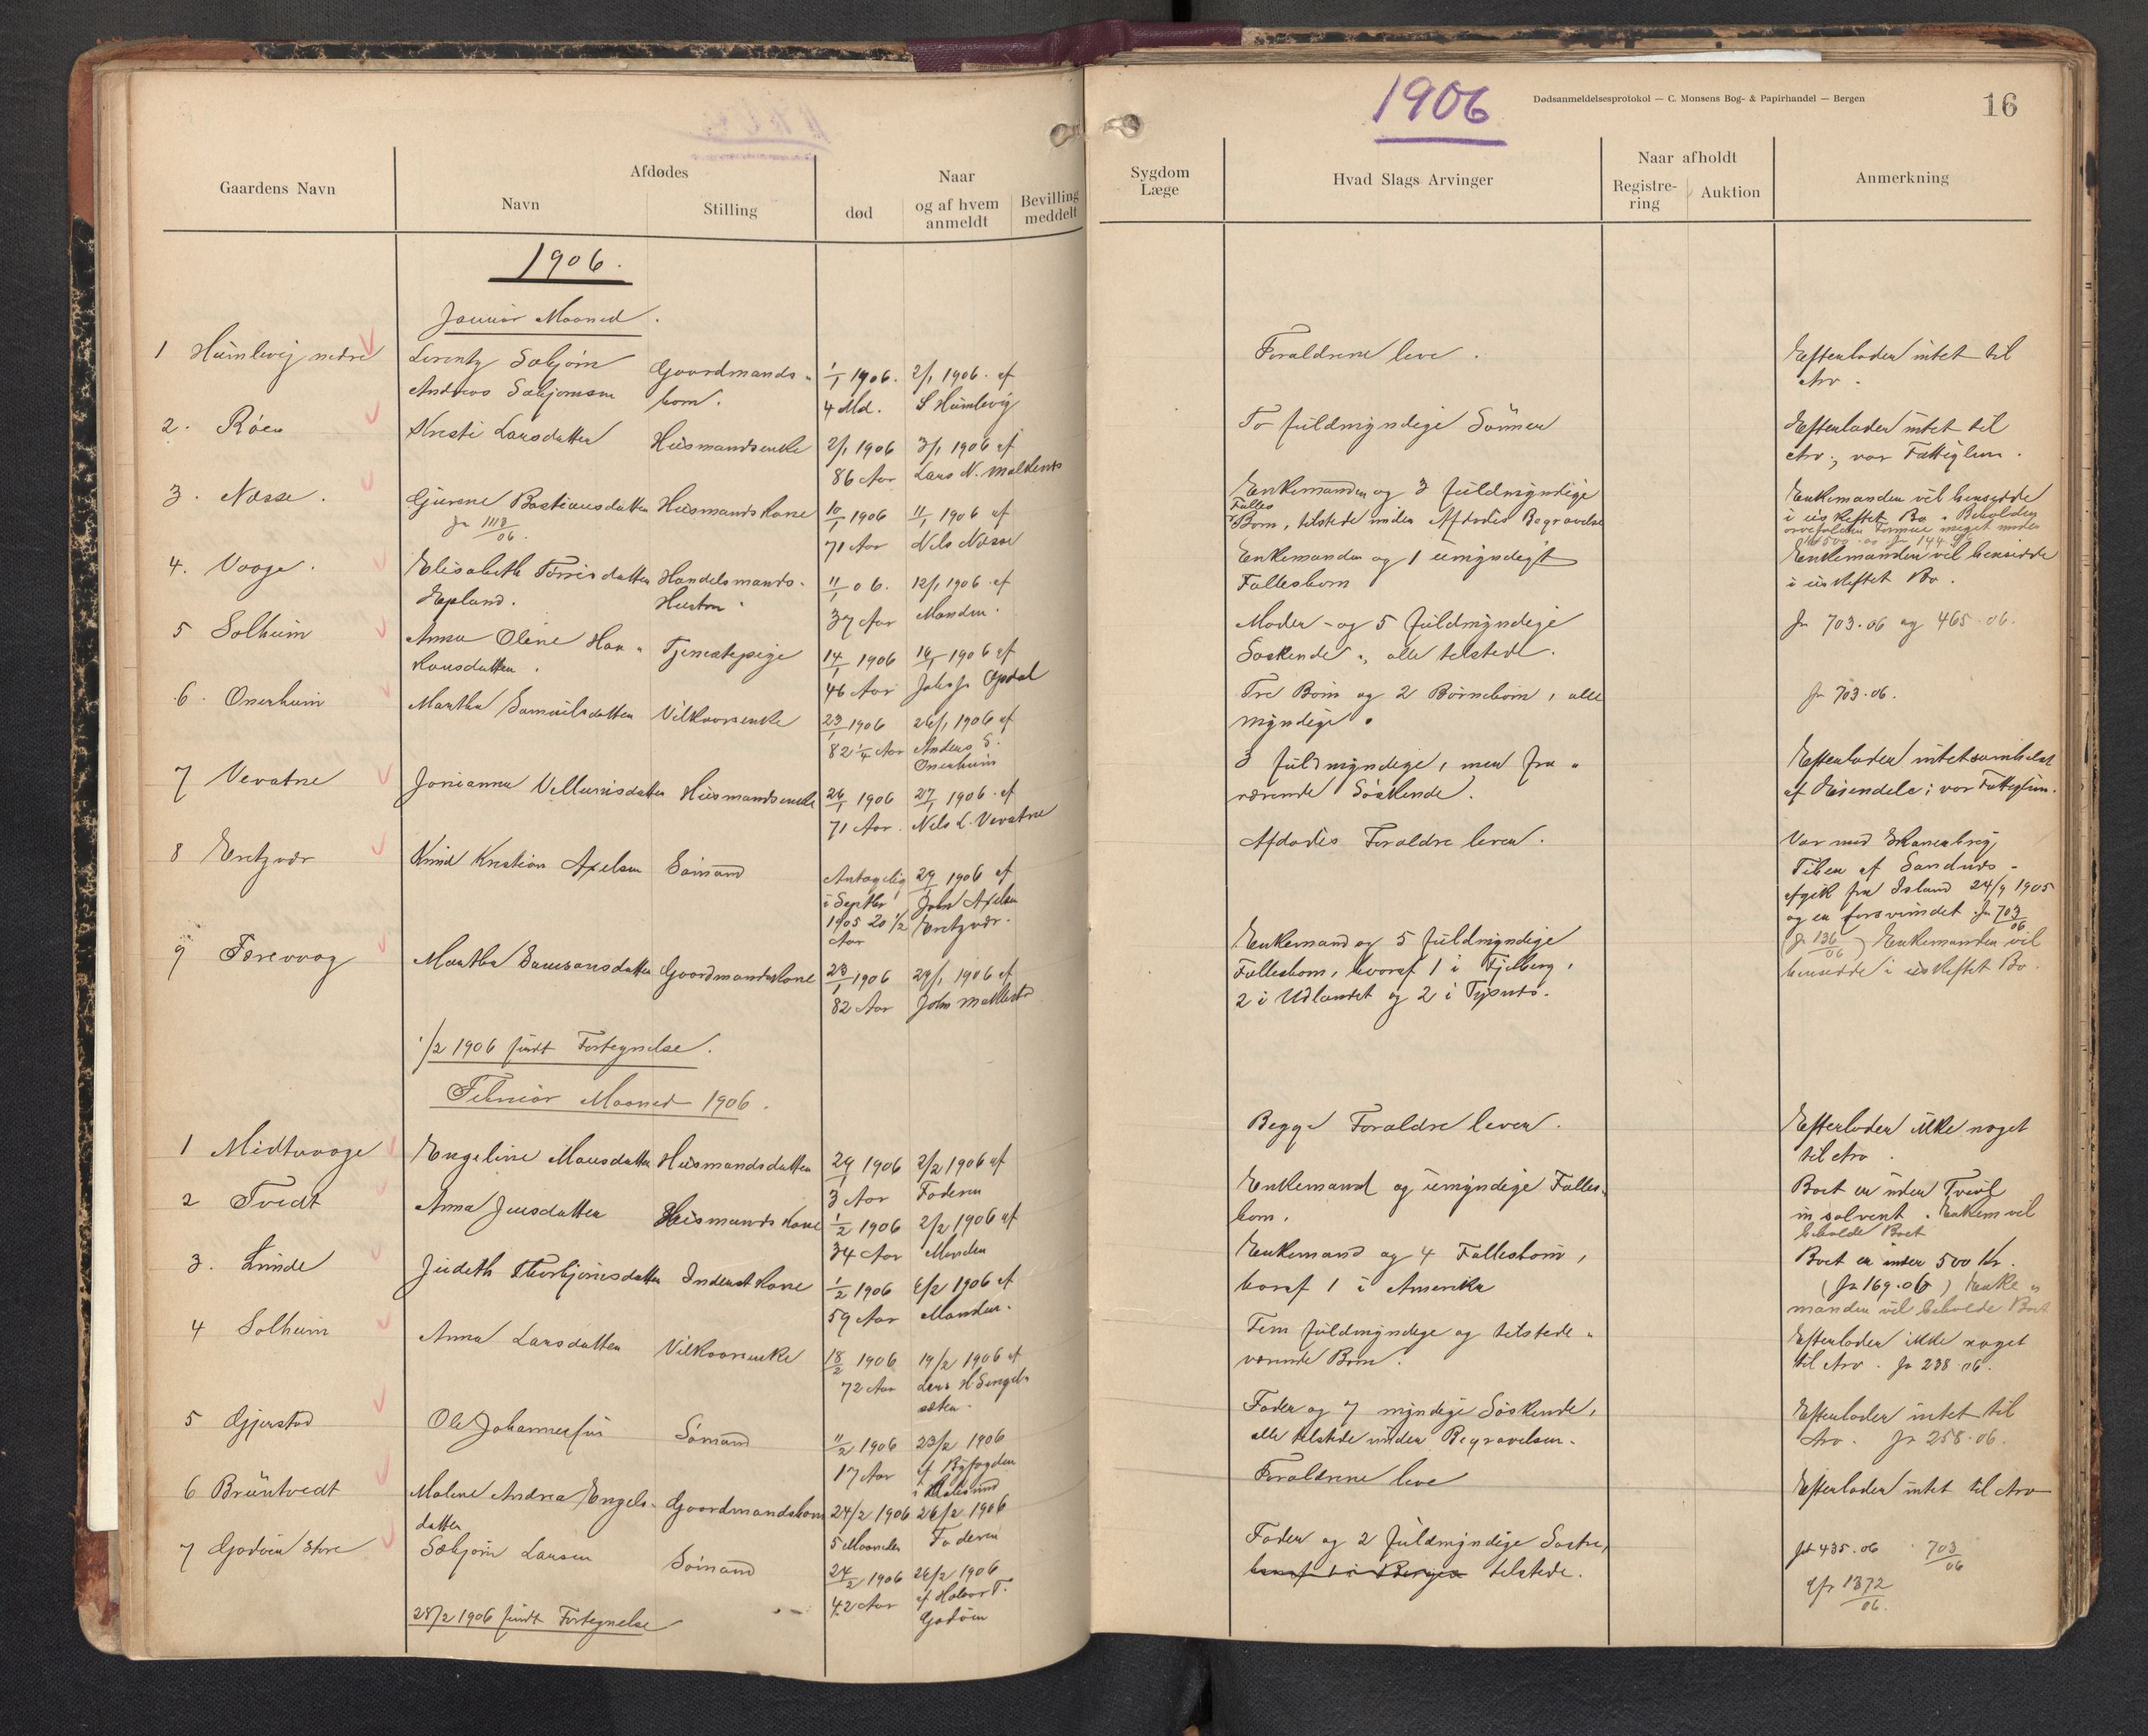 1906
Dødsanmeldelsesprotokol — C. Monsens Bog- & Papirhandel — Bergen
16
Gaardens Navn
Afdødes
Navn
Stilling
Naar
død
og af hvem anmeldt
Bevilling meddelt
Sygdom
Læge
Hvad Slags Arvinger
Naar afholdt
Registre-
ring
Auktion
Anmerkning
1906.
Januar Maaned.
1 Humlevig nedre Lorentz Sæbjørn Gaardmands- 1/1 1906. 2/1 1906. af Forældrene leve. Efterlader intet til
Andreas Sæbjørnsen barn. 4 Md. S Humlevig Arv.
2. Røen Kristi Larsdatter Husmandsenke 2/1 1906 3/1 1906 af To fuldmyndige Sönner Efterlader intet til
86 Aar Lars N. Arv., var Fattiglem.
3. Næsse. Gjurine Bastiansdatter Husmandskone 10/1 1906 11/1 1906 af Enkemanden og 3 fuldmyndige Enkemanden vil hensidde
Jr 1118/06. 71 Aar Nils Næsse Fælles Børn, tilstede under Afdødes Begravelse i uskiftet Bo.
4. Vaage. Elisabeth Tørrisdatter Handelsmands- 11/1 06. 12/1 1906 af Enkemanden og 1 umyndigt Enkemanden vil hensidde
Hustru. 37 Aar Manden. Fællesbarn i uskiftet Bo.
5 Solheim Anna Oline Haa- Tjenestepige 14/1 1906 16/1 1906 af Moder og 5 fuldmyndige Jr 703.06 og 465.06.
konsdatter. 46 Aar Opdal Søskende, alle tilstede.
6. Onerheim Martha Samuelsdatter Vilkaarsenke 23/1 1906 26/1 1906 af Tre Børn og 2 Børnebørn, alle Jr 703.06.
82 1/4 Aar Anders S. myndige.
Onerheim
7 Vevatne Husmandsenke 26/1 1906 27/1 1906. af 3 fuldmyndige, men fra- Efterlader intetsomhelst
71 Aar. Nils L. Vevatne værende Söskende. af Eiendele; var Fattiglem.
8 Knud Kristian Axelsen Sömand Antagelig 29/1 1906 af Afdødes Forældre lever. Var med
i Septbr John Axelsen af Sandnes-
1905 20 1/2 afgik fra Island 24/9 1905
Aar og er forsvundet. Jr 703/06
9 Færevaag Martha Gaardmandskone 23/1 1906 29/1 1906 af Enkemand og 5 fuldmyndige (Jr 136/06) Enkemanden vil
82 Aar John Fællesbørn, hvoraf 1 i Fjelberg, hensidde i uskiftet Bo.
2 i Udlandet og 2 i Tysnes.
1/2 1906 sendt Fortegnelse.
Februar Maaned 1906.
1 Midtvaage Engeline Monsdatter Husmandsdatter 29/1 1906 2/2 1906 af Begge Forældre lever. Efterlader ikke noget
3 Aar Faderen til Arv.
2 Tvedt Anna Jensdatter Husmandskone 1/2 1906 2/2 1906 af Enkemand og umyndige Fælles- Boet er uden Tvivl
34 Aar Manden børn. insolvent. Enkem vil
beholde Boet
3. Lunde Judith Thorbjørnsdatter Inderstkone 1/2 1906 6/2 1906 af Enkemand og 4 Fællesbørn, Boet er under 500 Kr.
59 Aar Manden. hvoraf 1 i Amerika (Jr 169.06) Enke-
manden vil beholde Boet
4 Solheim Anna Larsdatter Vilkaarsenke 18/2 1906 19/2 1906 af Fem fuldmyndige og tilstede- Efterlader ikke noget
72 Aar Lars H Singel- værende Børn. til Arv. Jr 238.06.
sæter.
5 Gjerstad Ole Johannessen Sömand 11/2 1906 23/2 1906 Fader og 7 myndige Söskende, Efterlader intet til
17 Aar af Byfogden alle tilstede under Begravelsen. Arv. Jr 258.06.
i Aalesund
6 Bruntvedt Malene Andrea Engels- Gaardmandsbarn 24/2 1906 26/2 1906 Forældrene leve Efterlader intet til Arv
datter 5 Maaneder Faderen
7 Godøen Store Sæbjørn Larsen Sömand 24/2 1906 26/2 1906 Fader og 2 fuldmyndige Søstre, Jr 435.06 703/06
42 Aar af Halvor T. hvoraf 1 i Bergen tilstede. Jfr 1372/06.
Godøen
28/2 1906 sendt Fortegnelse